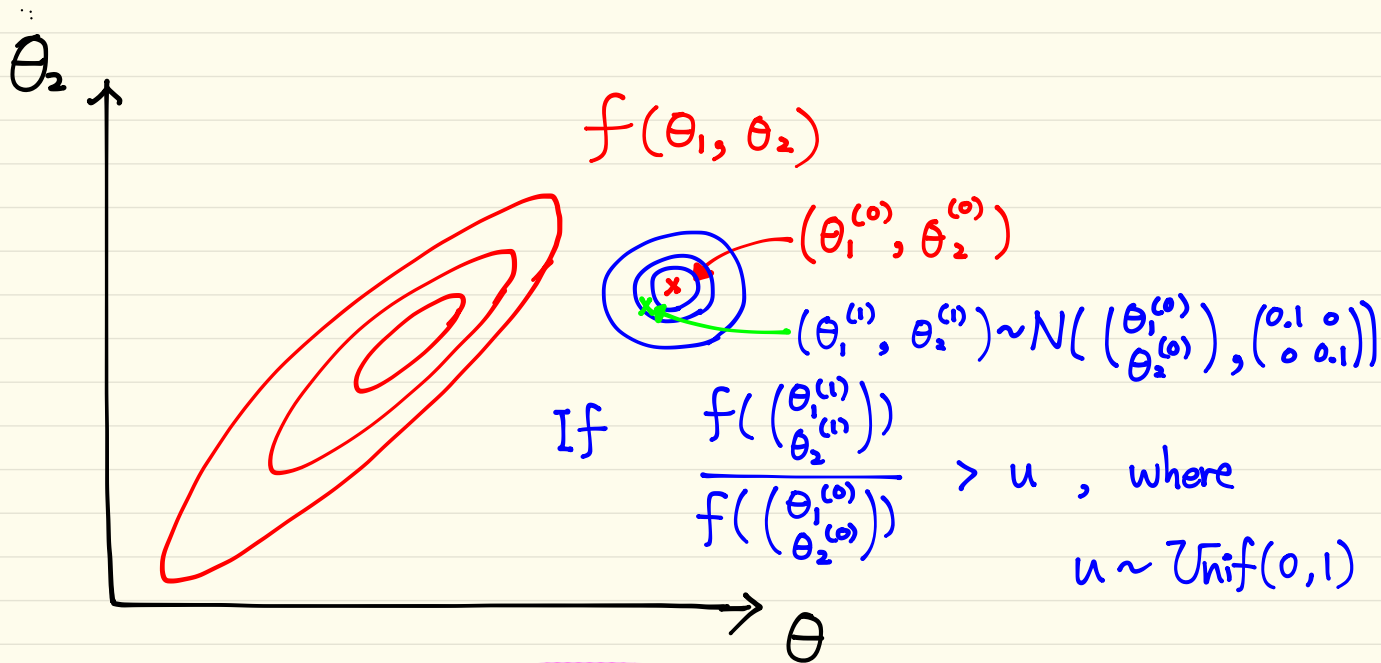 θ₂
f(θ₁, θ₂)
(θ₁⁽⁰⁾, θ₂⁽⁰⁾)
(θ₁⁽¹⁾, θ₂⁽¹⁾) ~ N((θ₁⁽⁰⁾ θ₂⁽⁰⁾), (0.1 0 0 0.1))
If f((θ₁⁽¹⁾ θ₂⁽¹⁾)) / f((θ₁⁽⁰⁾ θ₂⁽⁰⁾)) > u , where
u ~ Unif(0,1)
θ